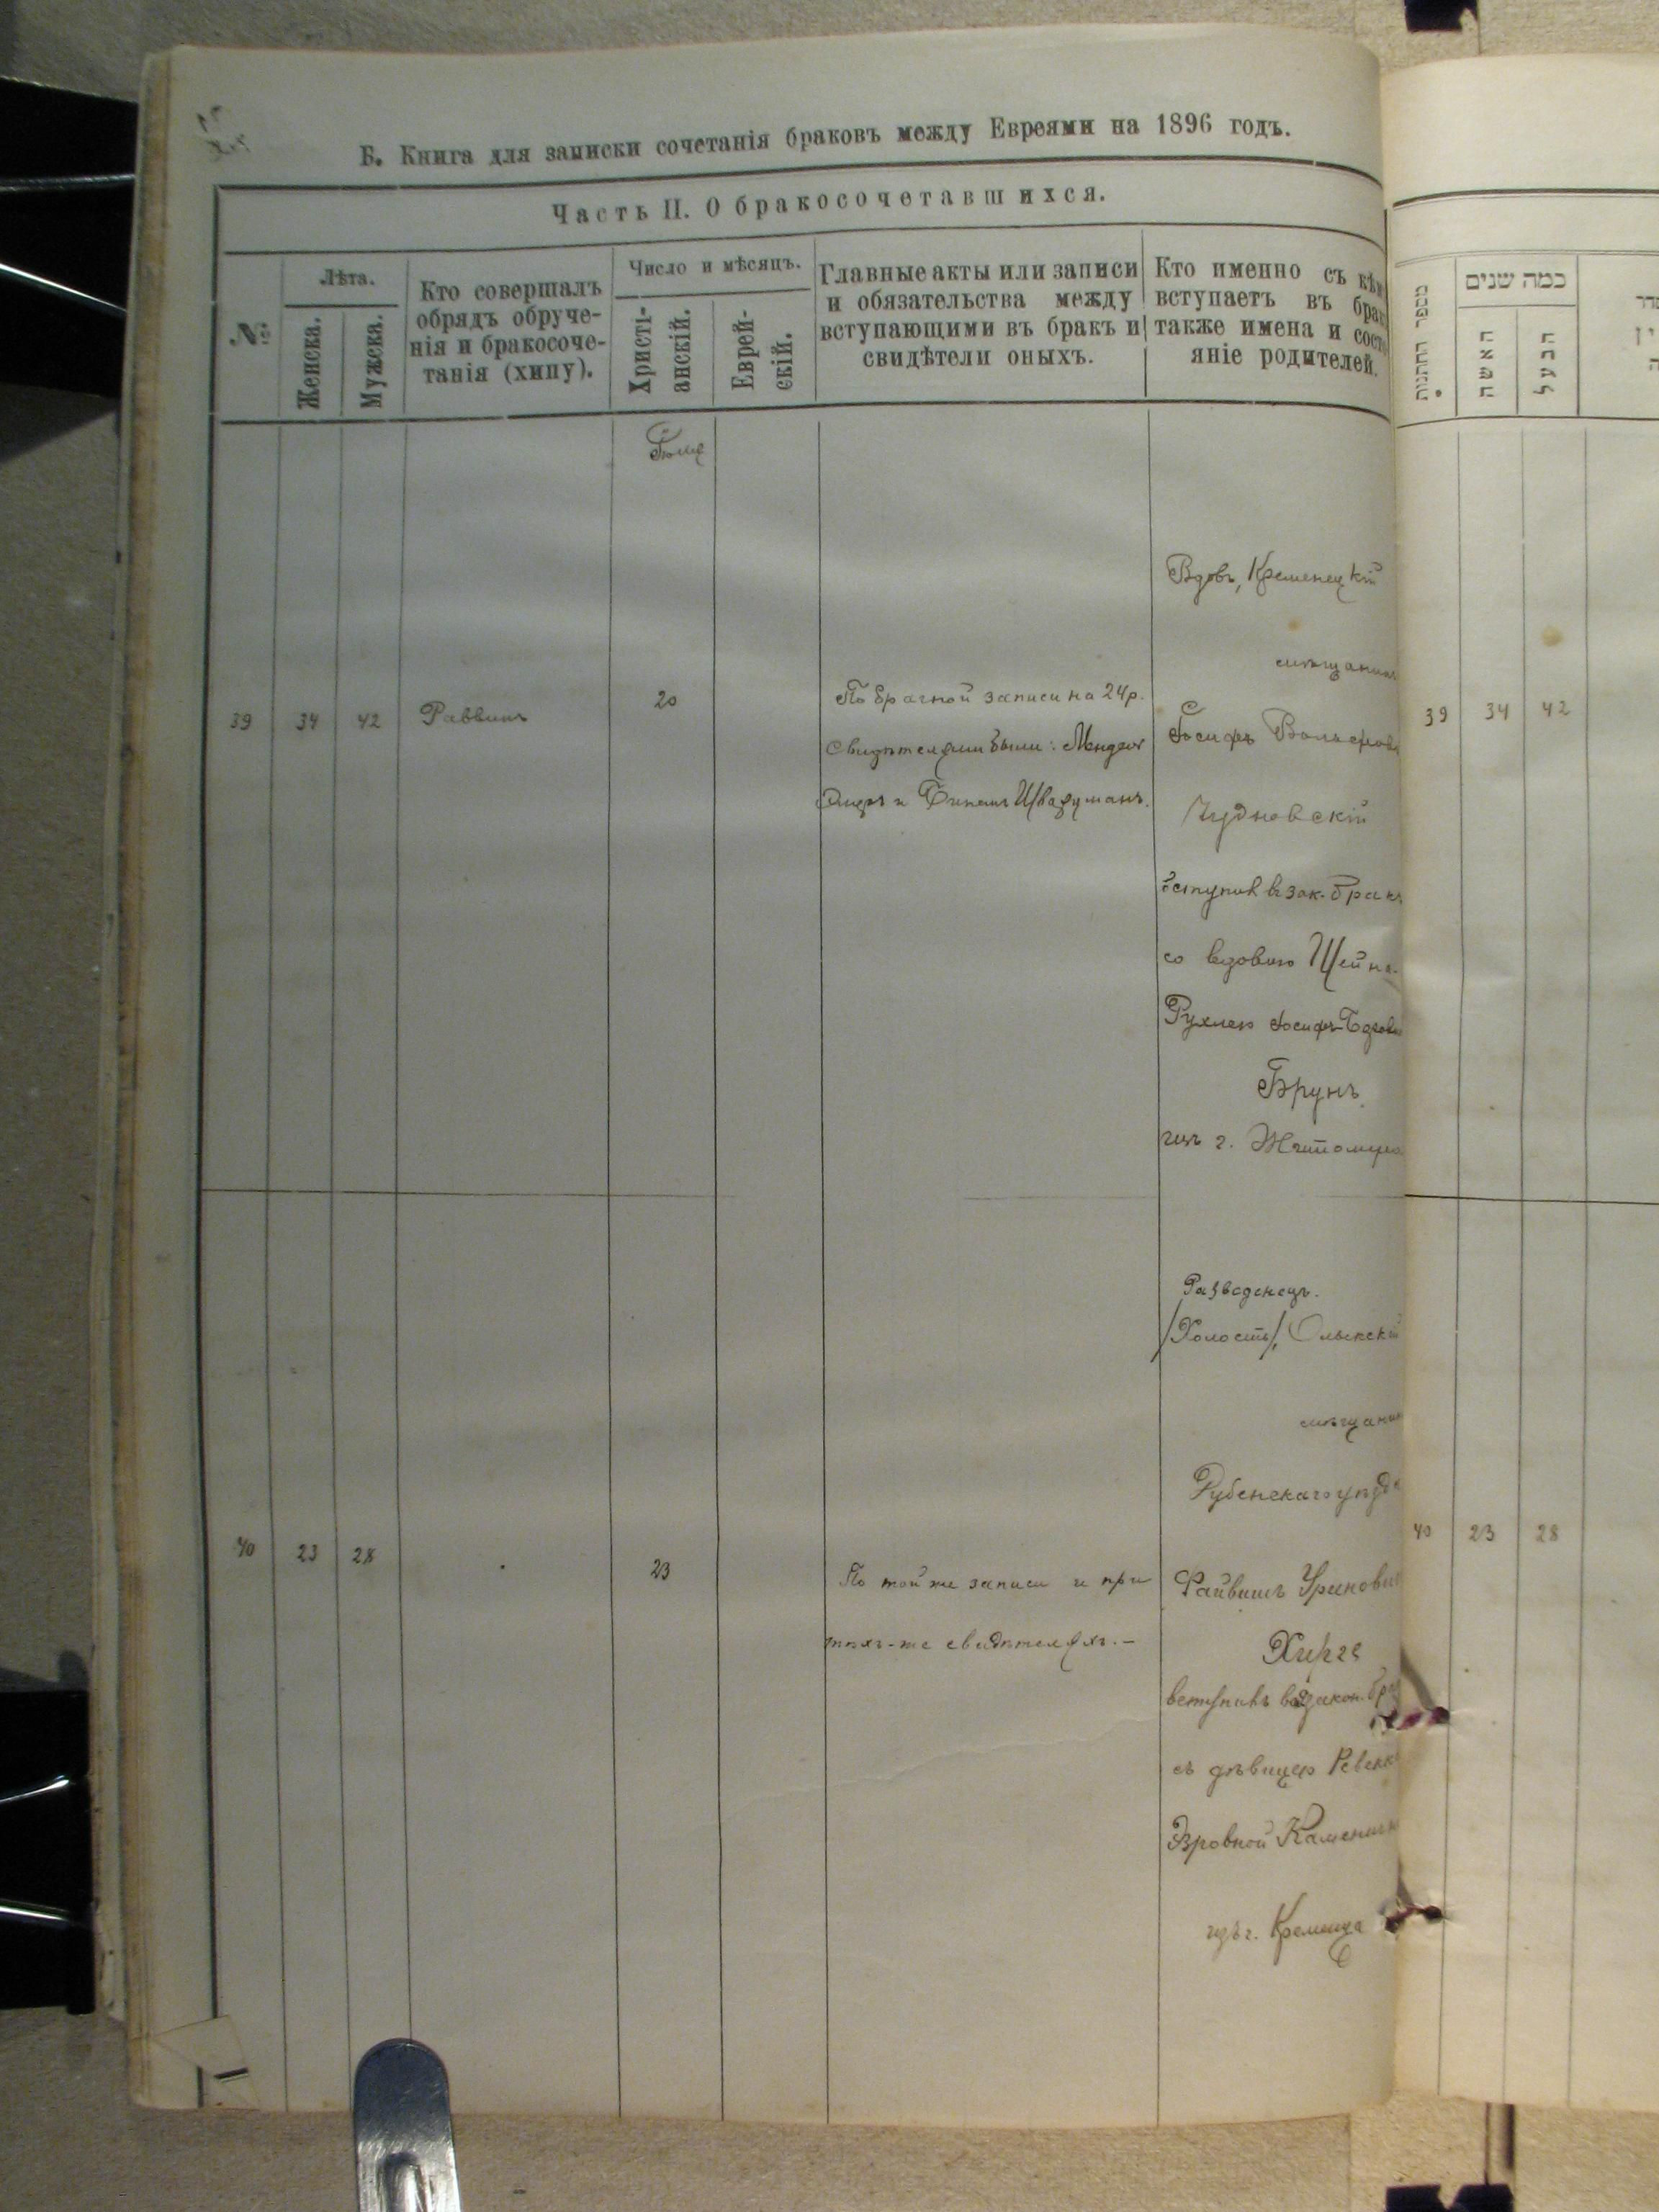 Б. Книга для записки сочетанія браковъ между Евреями на 1896 годъ.
Часть II. О бракосочетавшихся.
№
Лѣта.
Женска.
Мужска.
Кто совершалъ
обрядъ обруче-
нія и бракосоче-
танія (хипу).
Число и мѣсяцъ.
Христі-
анскій.
Еврей-
скій.
Главные акты или записи
и обязательства между
вступающими въ бракъ и
свидѣтели оныхъ.
Кто именно съ кѣм
вступаетъ въ брак
также имена и сост
яніе родителей.
39
34
42
Раввинъ
20
По брачной записи на 24 р.
Свидѣтелями были: Мендель
и Шварцманъ.
Вдовъ, Кременецкій
мѣщанинъ
Іосифъ Вольфов
Чудновскій
вступив в зак. бракъ
со вдовою Шейна-
Рухлею Іосифъ-
Брунъ
изъ г. Житомира
40
23
28
23
По той же записи и при
тѣхъ-же свидѣтеляхъ.-
Разведенецъ.
/Холостъ/, Олыкскій
мѣщанин
уѣзда
Файвишъ
вступивъ въ закон. бр
съ дѣвицею Ревек
Каменич
изъ г. Кременца
מספר החתונות
כמה שנים
האשה
הבעל
39
34
42
40
23
28